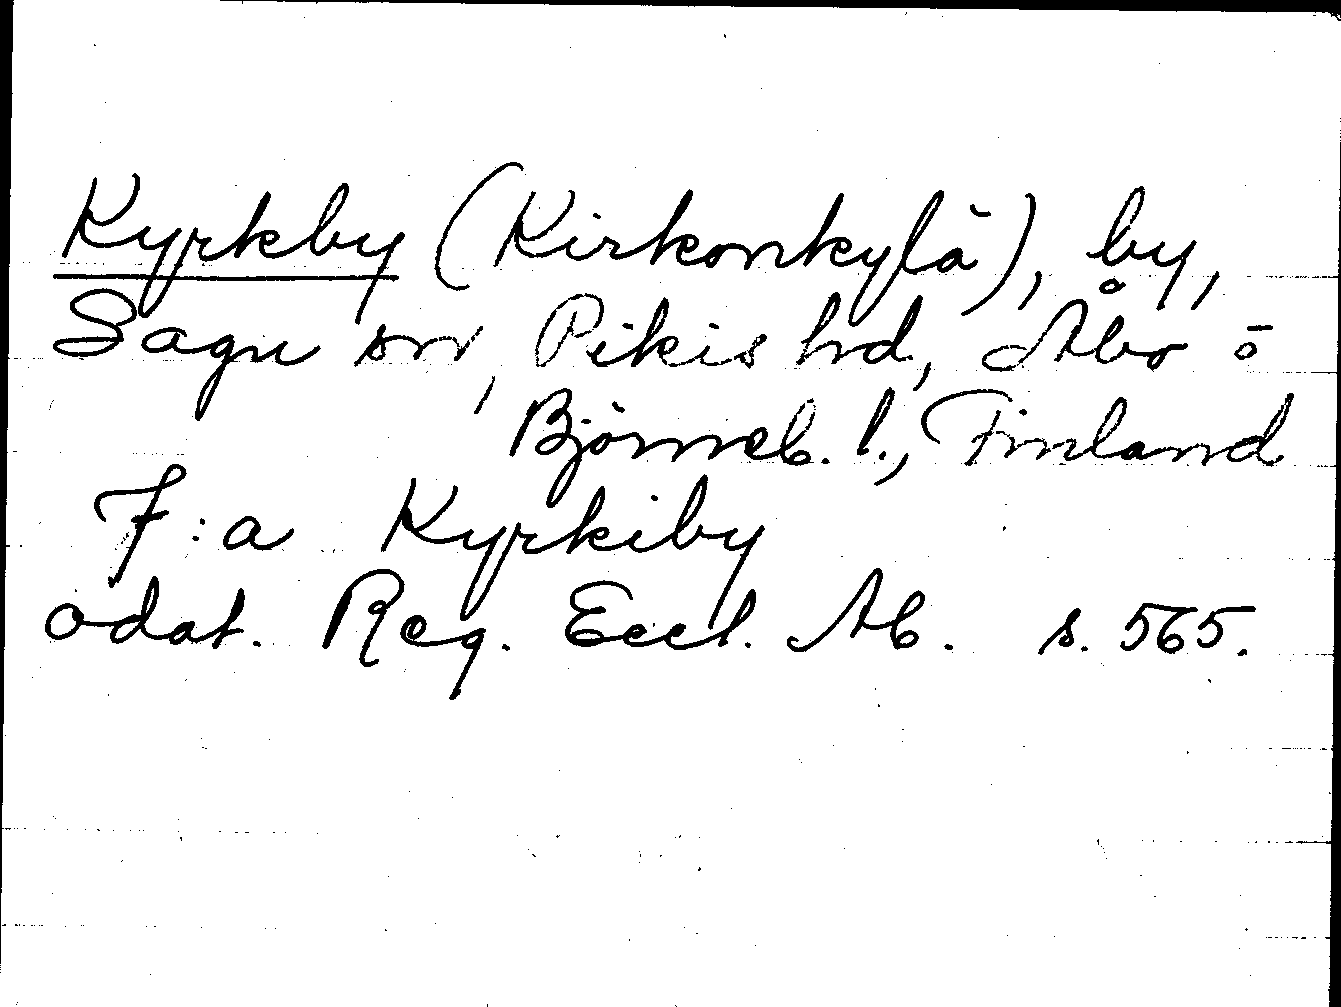 Kyrkby (Kirkonkylä), by,
Sagu sn, Pikis hd, Åbo o
Björneb. l., Finland
F: a Kyrkiby
odat. Reg. Eccl. Ab. s. 565.